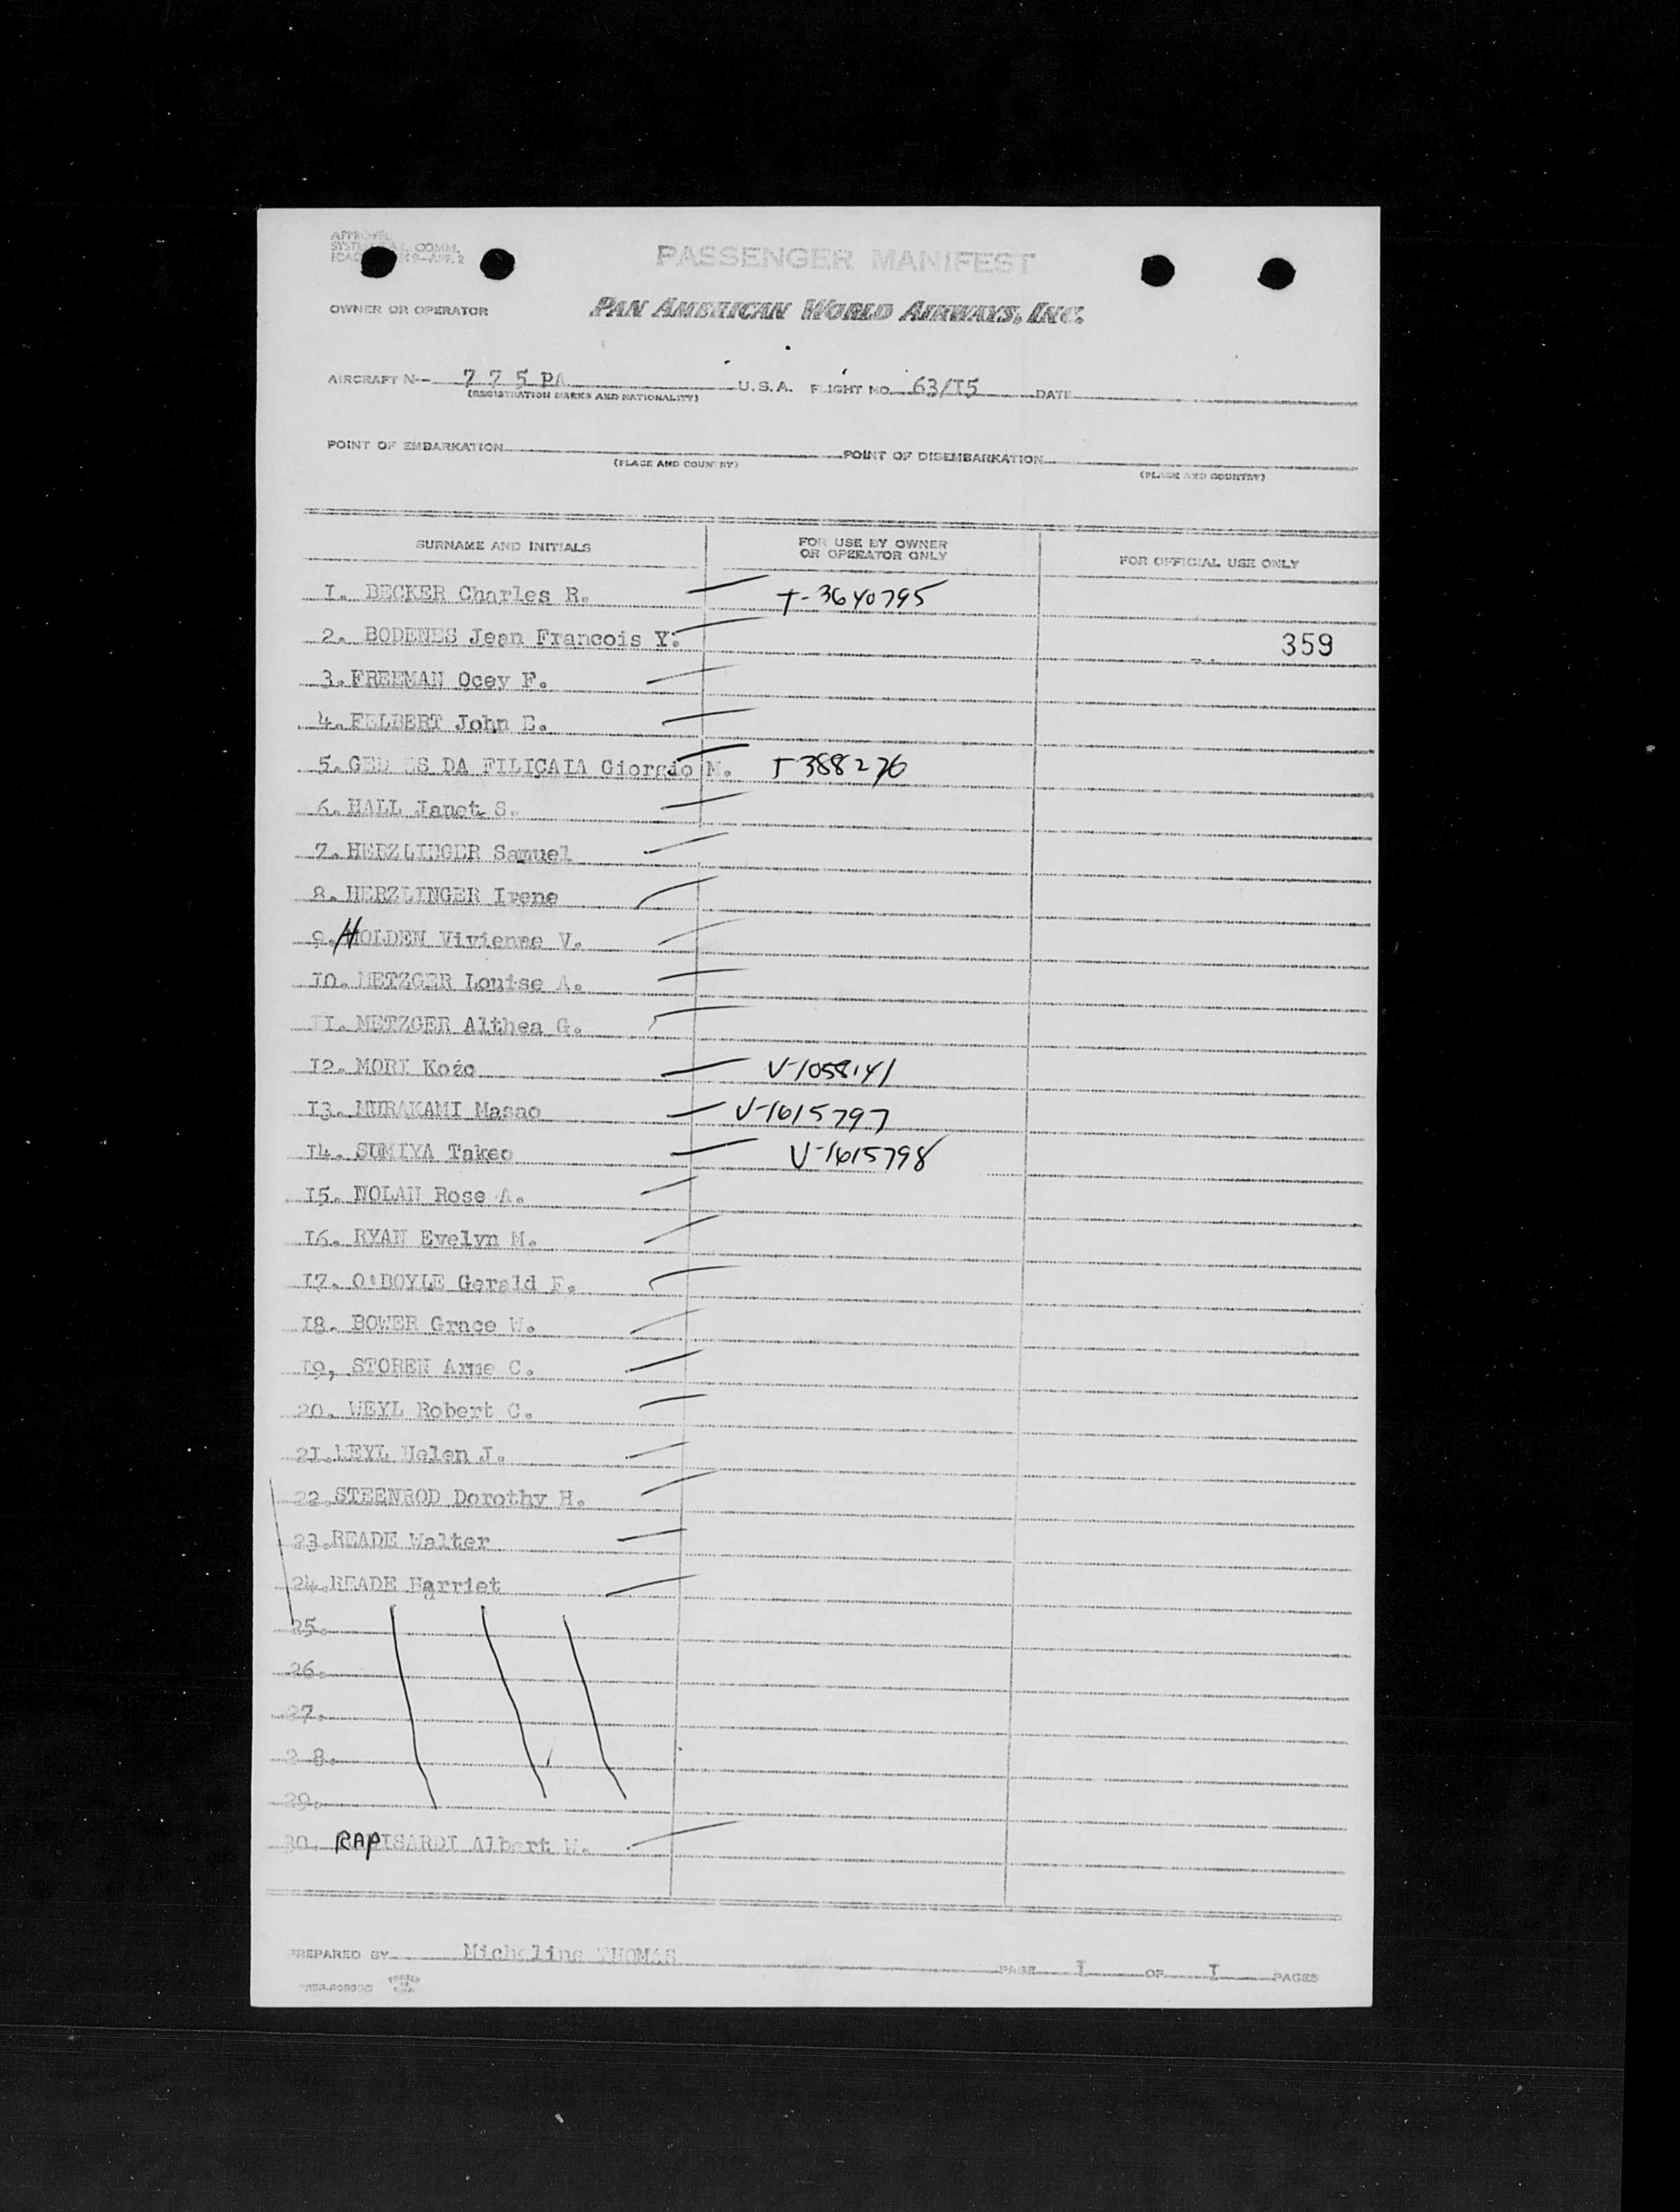 APPROVED
COMM.
PASSENGER MANIFEST
OWNER OR OPERATOR PAN AMERICAN WORLD AIRWAYS, INC.
AIRCRAFT N- 7 7 5 PA U.S.A. FLIGHT NO. 63/I5 DATE
(REGISTRATION MARKS AND NATIONALITY)
POINT OF EMBARKATION POINT OF DISEMBARKATION
(PLACE AND COUNTRY) (PLACE AND COUNTRY)
SURNAME AND INITIALS FOR USE BY OWNER OR OPERATOR ONLY FOR OFFICIAL USE ONLY
I. BECKER Charles R. T-3640795
2. BODENES Jean Francois Y. 359
3. FREEMAN Ocey F.
4. FELBERT John E.
5. DA FILICAIA Giorgio N. T 388276
6. HALL Janet S.
7. HERZLINGER Samuel
8. HERZLINGER Irene
9. HOLDEN Vivienne V.
I0. METZGER Louise A.
II. METZGER Althea G.
I2. MORI Kozo V-1058141
I3. MURAKAMI Masao V-1615797
I4. SUMIYA Takeo V-1615798
I5. NOLAN Rose A.
I6. RYAN Evelyn M.
I7. O'BOYLE Gerald F.
I8. BOWER Grace W.
I9, STOREN Arne C.
20. WEYL Robert C.
2I. WEYL Helen J.
22. STEENROD Dorothy H.
23. READE Walter
24. READE Harriet
25.
26.
27.
2 8.
29.
30. RAPISARDI Albert W.
PREPARED BY Micheline THOMAS PAGE I OF I PAGES